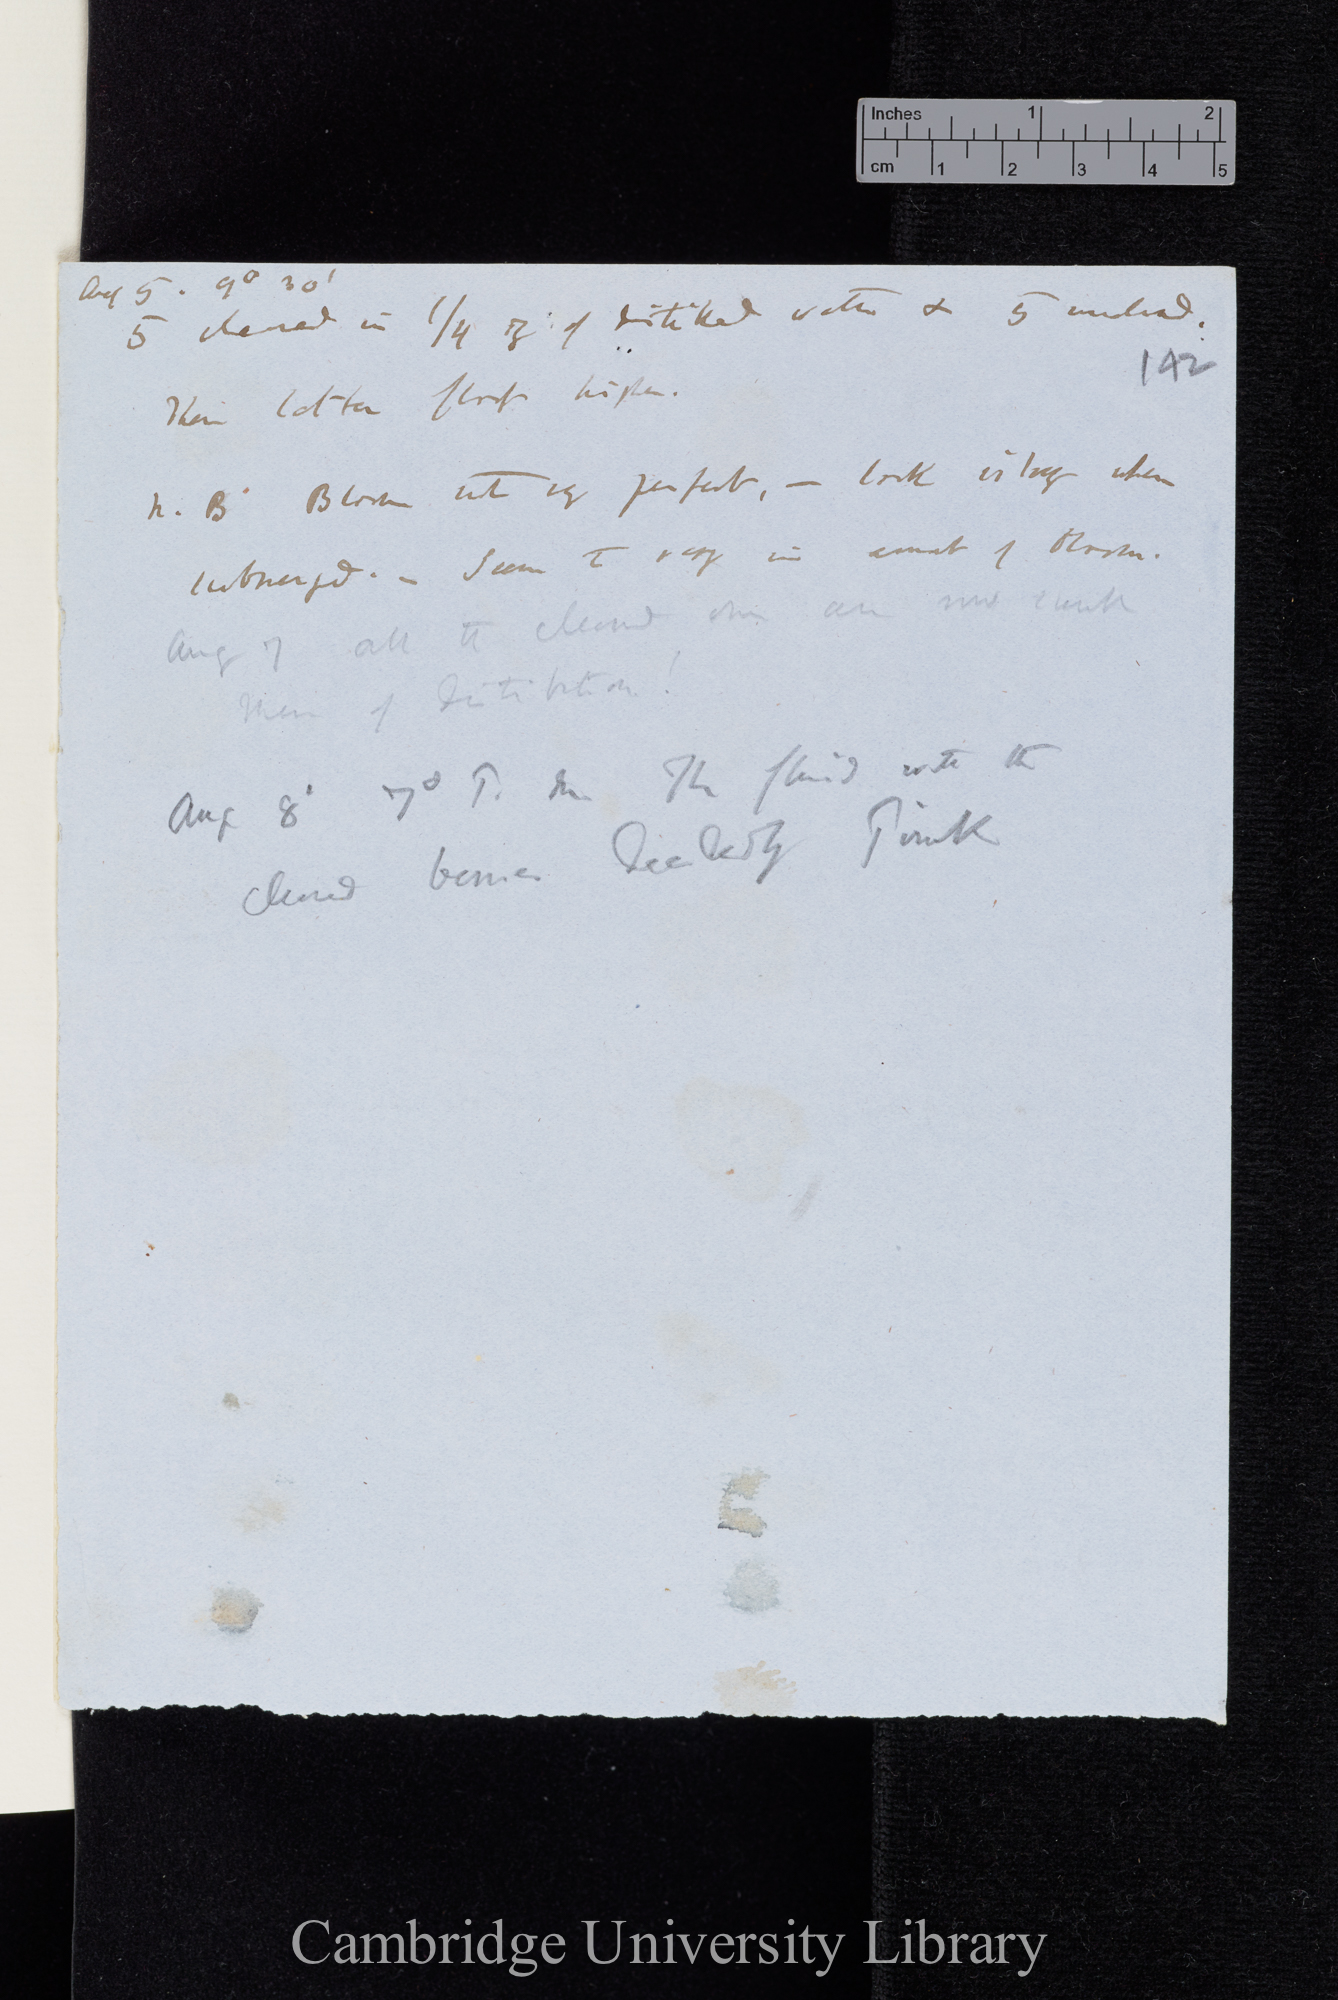 Inches 1 2
cm 1 2 3 4 5
Aug 5. 9° 30'
5 cleaned in 1/4 oz of distilled water & 5 uncleaned.
142
Then latter float higher.
N. B. Bloom not perfect, — look silvery when
submerged. — Seem to vary in amount of bloom.
Aug 7 all the cleaned ones are now sunk
of distribution!
Aug 8' 7° The fluid with the
cleaned becomes decidedly Pink
Cambridge University Library